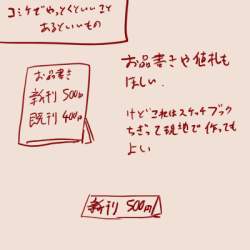 コミケでやっとくといいこと
あるといいもの
お品書き
新刊 500円
既刊 400円
お品書きや値札も
ほしい.
けどこれはスケッチブック
ちぎって現地で作っても
よい
新刊 500円